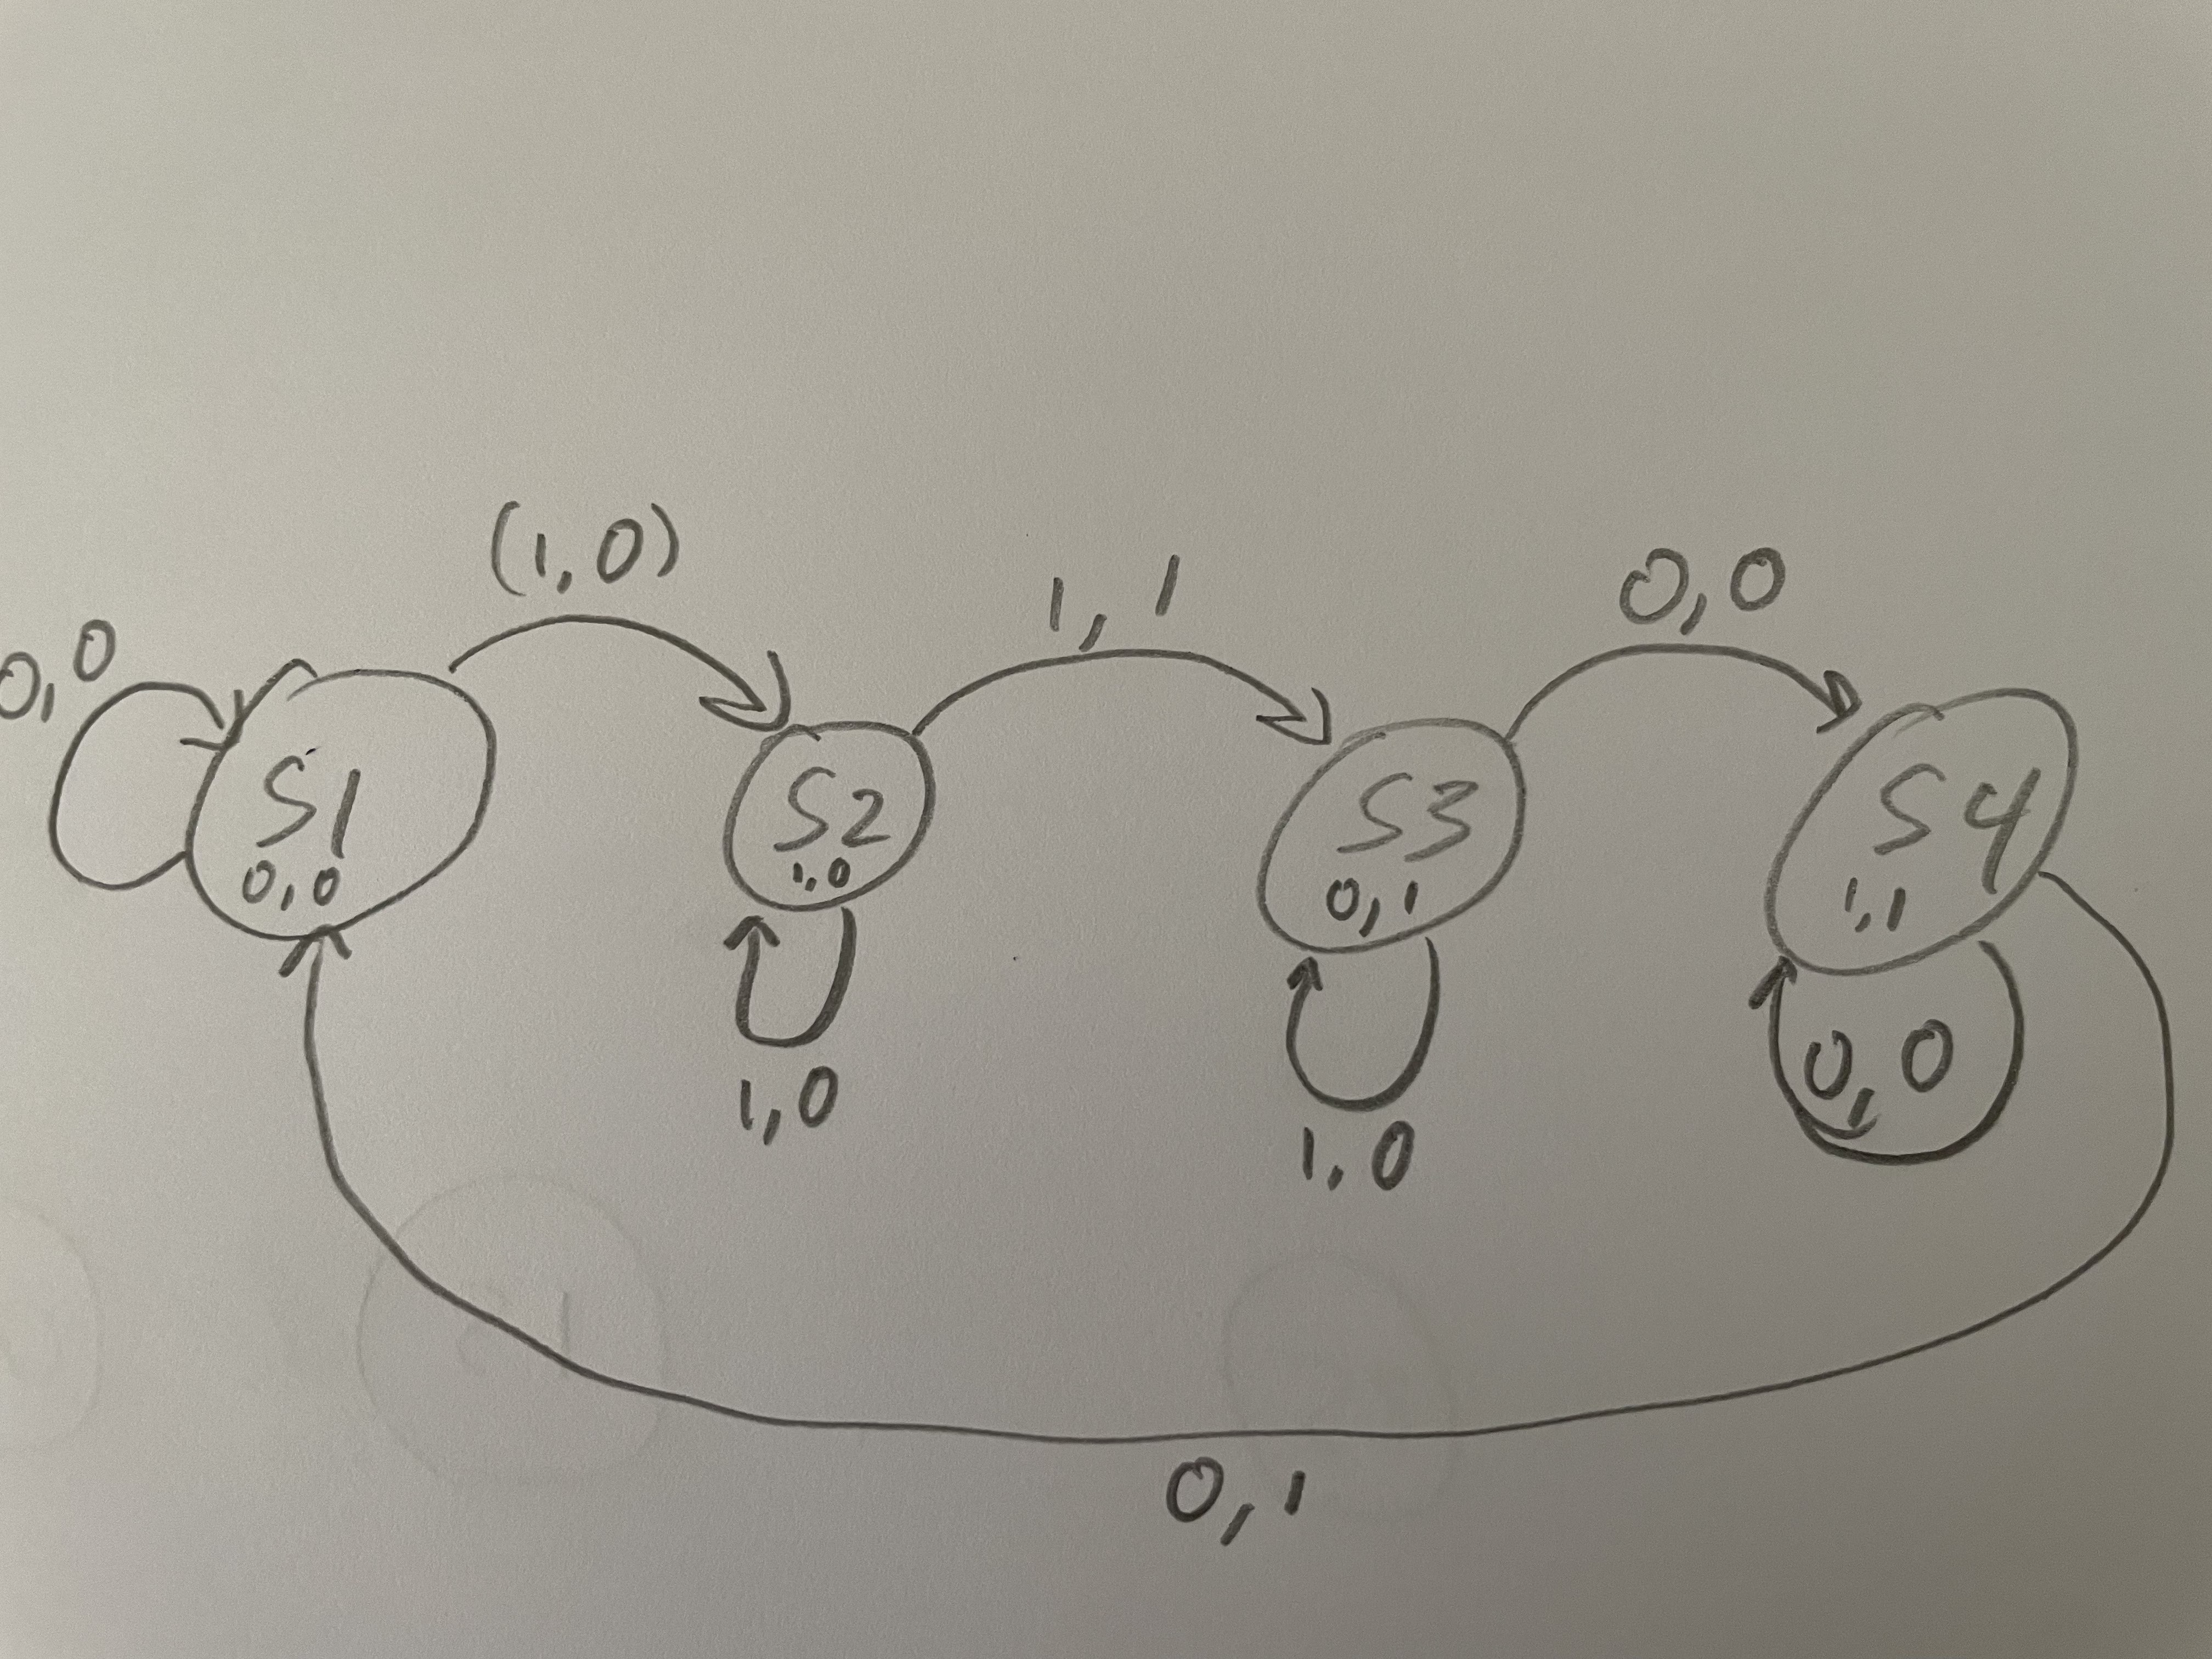 (1,0)
1,1
0,0
0,0
S1
0,0
S2
1,0
S3
0,1
S4
1,1
1,0
1,0
0,0
0,1